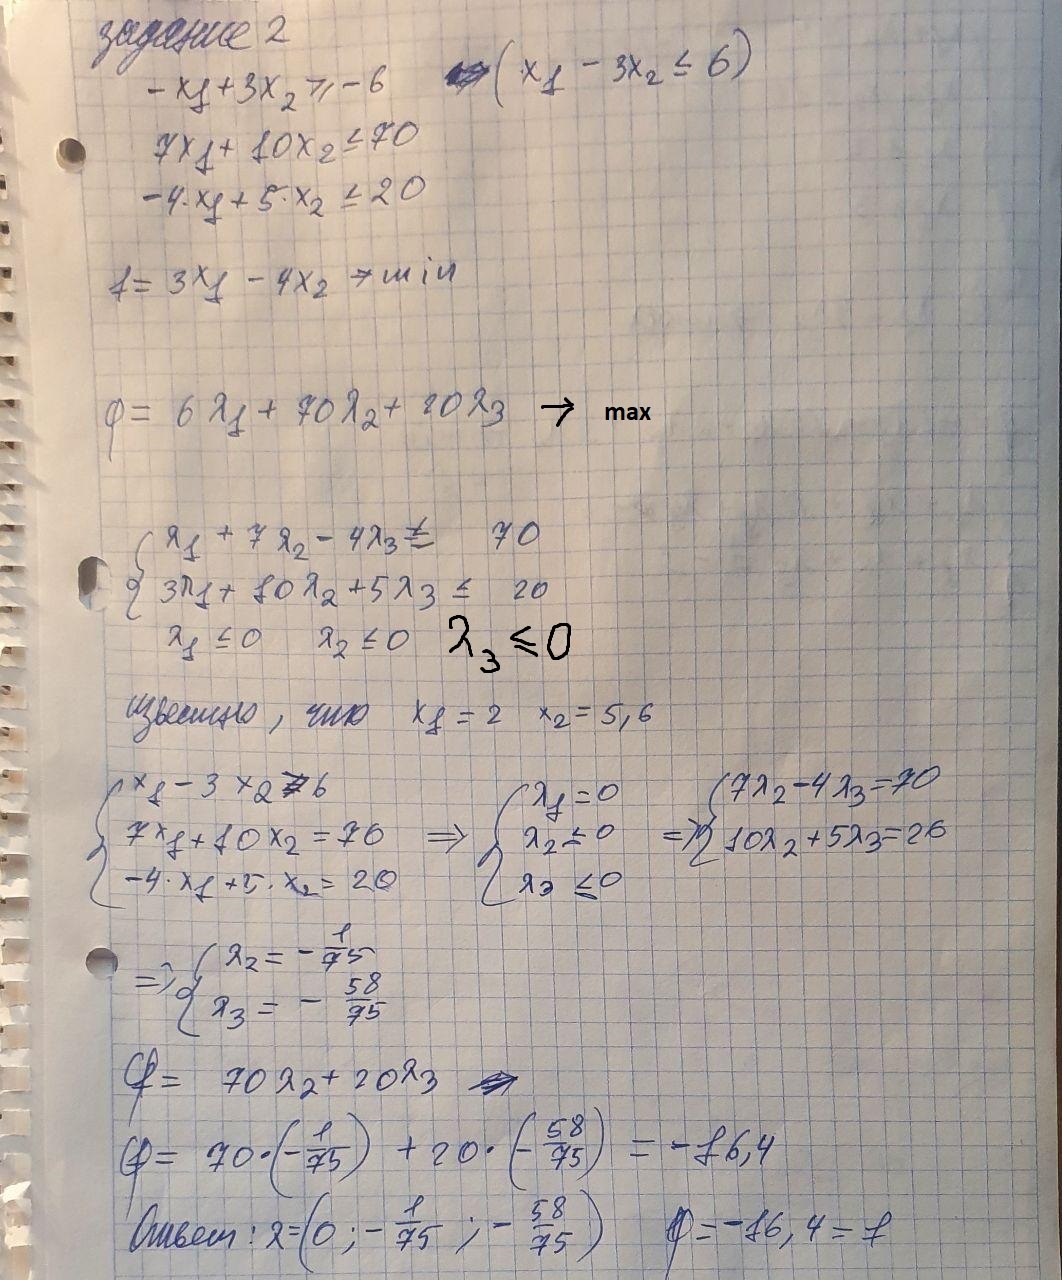 задание 2
-x₁+3x₂ ≥ -6 (x₁ - 3x₂ ≤ 6)
7x₁+10x₂ ≤ 70
-4·x₁+5·x₂ ≤ 20
f = 3x₁ - 4x₂ → min
φ = 6λ₁ + 70λ₂ + 20λ₃ → max
{ λ₁ + 7λ₂ - 4λ₃ ≤ 70
3λ₁ + 10λ₂ + 5λ₃ ≤ 20
λ₁ ≤ 0 λ₂ ≤ 0 λ₃ ≤ 0
известно, что x₁ = 2 x₂ = 5,6
{ x₁ - 3x₂ ≠ 6 { λ₁ = 0 { 7λ₂ - 4λ₃ = 70
7x₁ + 10x₂ = 70 ⇒ λ₂ ≤ 0 ⇒ 10λ₂ + 5λ₃ = 20
-4·x₁ + 5·x₂ = 20 λ₃ ≤ 0
⇒ { λ₂ = -1/75
λ₃ = -58/75
φ = 70λ₂ + 20λ₃
φ = 70·(-1/75) + 20·(-58/75) = -16,4
Ответ: λ = (0; -1/75; -58/75) φ = -16,4 = f